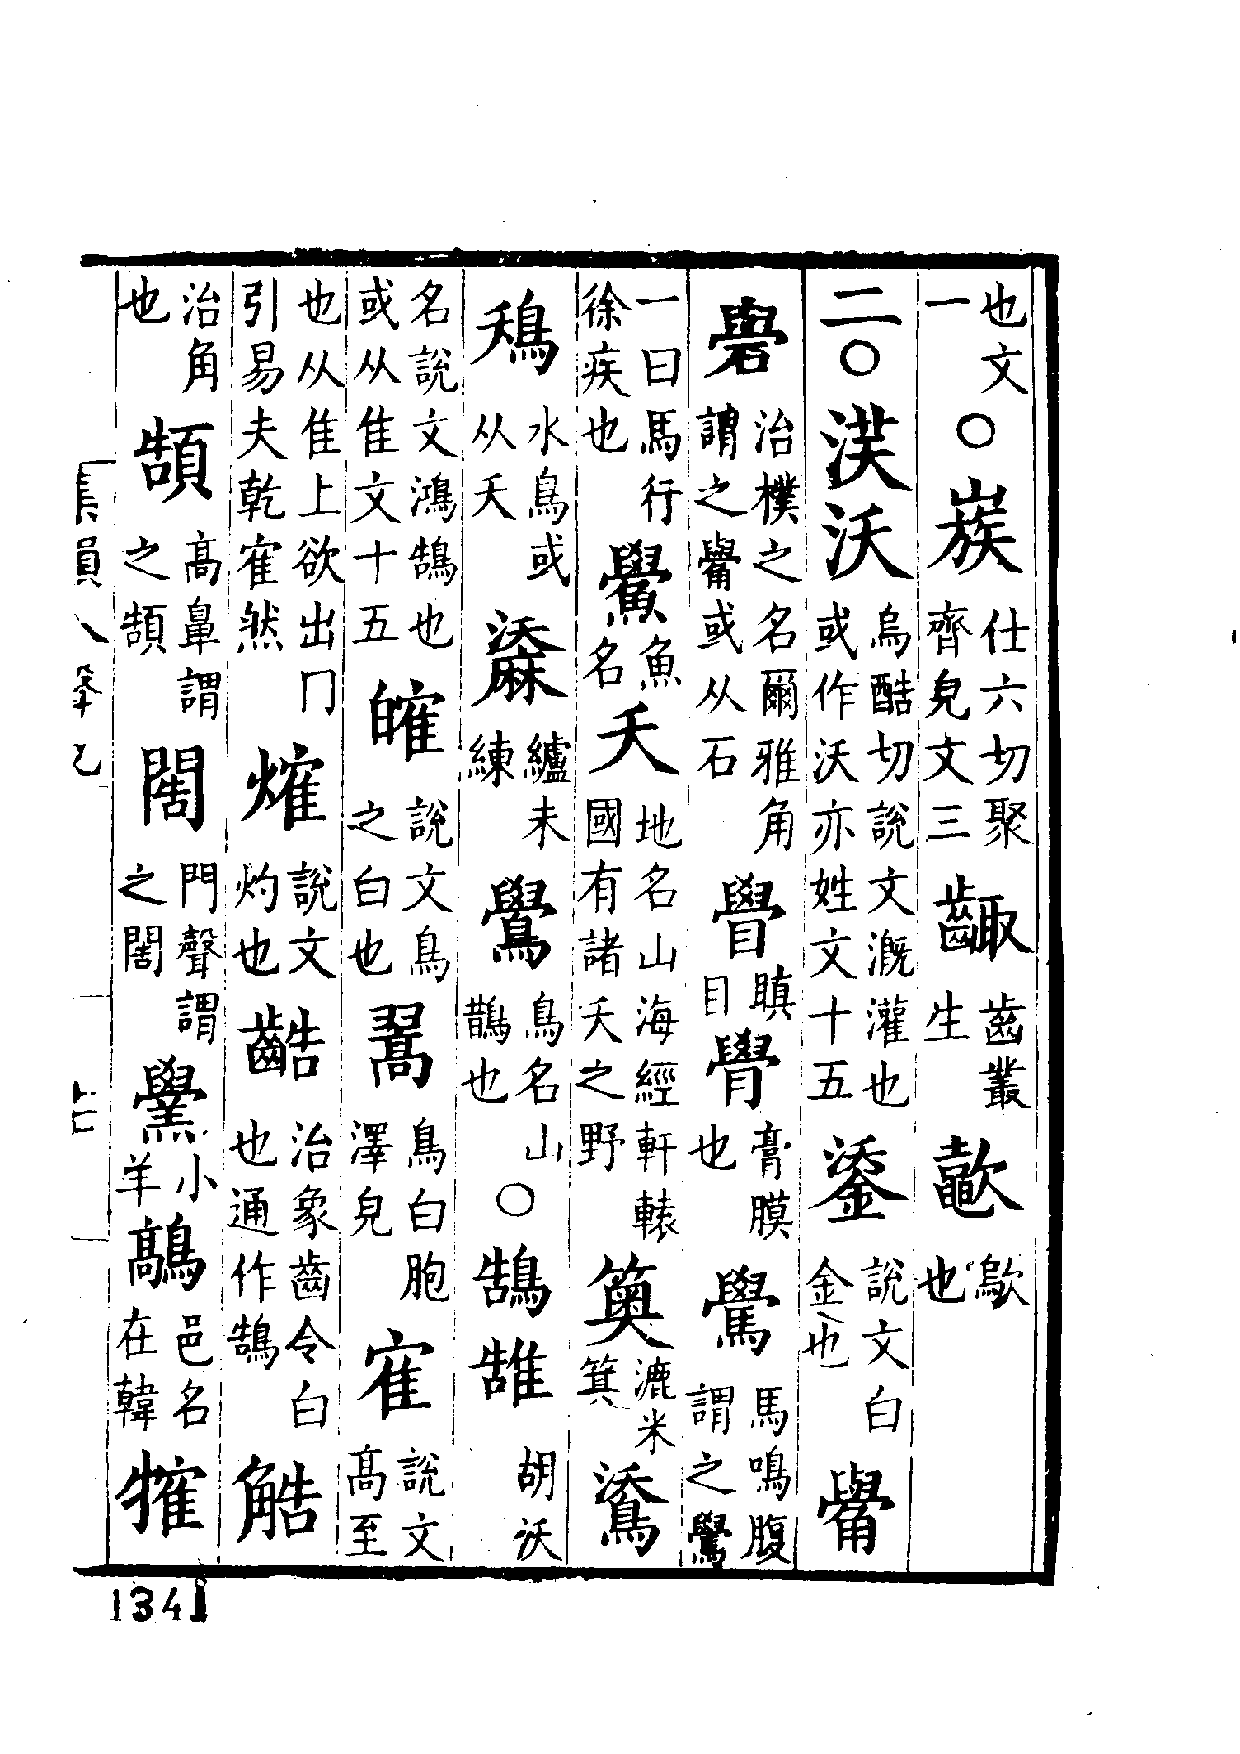 也文一○仕六切聚齊皃文三齱齒叢生歍也
二○沃烏酷切說文溉灌也或作沃亦姓文十五鋈說文白金也觷
礐治樸之名爾雅角謂之觷或从石瞋目膏膜也馬鳴腹謂之
一曰馬行徐疾也鱟魚名夭地名山海經軒轅國有諸夭之野䉛漉米箕
鴁水鳥或从夭纑未練鷽鳥名山鵲也○鵠䧼胡沃
名說文鴻鵠也或从隹文十五㿥說文鳥之白也翯鳥白胞澤皃隺說文高至
也从隹上欲出冂引易夫乾隺然㷤說文灼也䶜治象齒令白也通作鵠
治角也高鼻謂之門聲謂之小羊邑名在韓㹊
集韻入聲九
1341